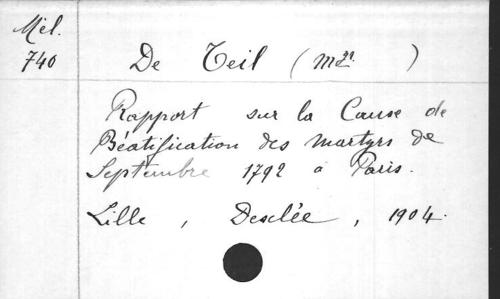 Mél.
740
De Teil (Mgr. )
Rapport sur la Cause de
Béatification des Martyrs de
Septembre 1792 à Paris.
Lille, Desclée, 1904.